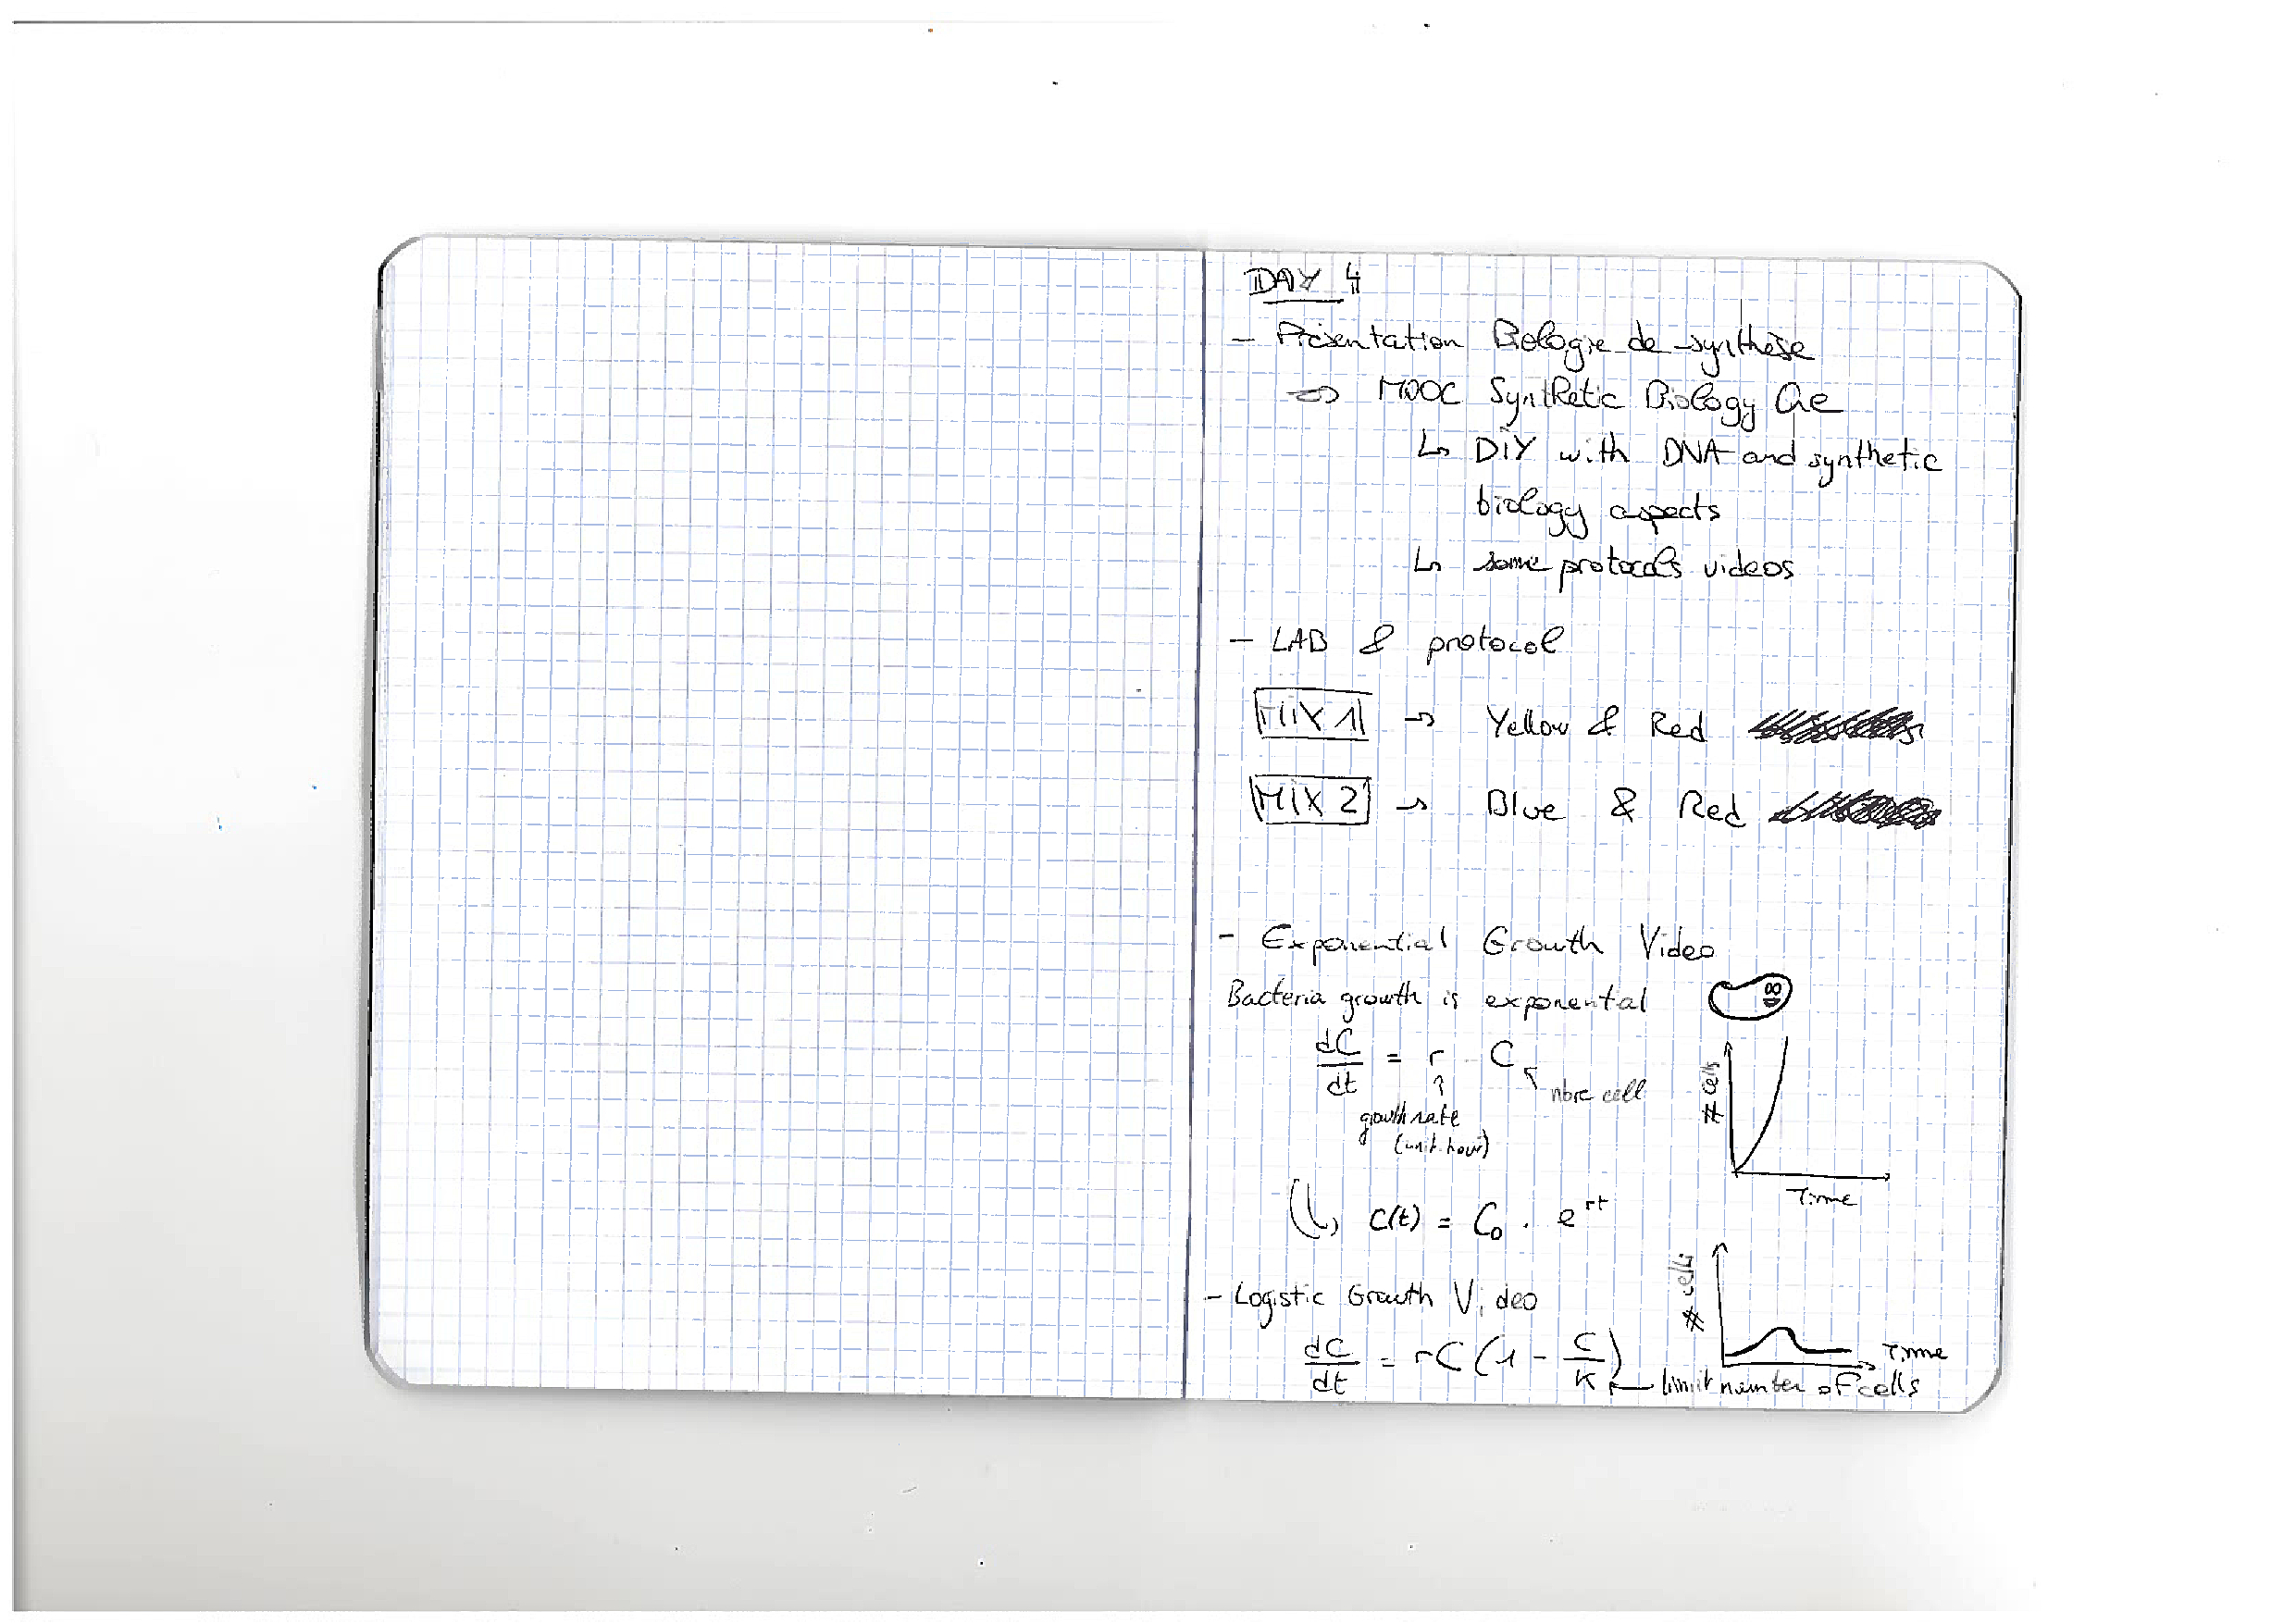 DAY 4
- Présentation Biologie de synthèse
⇒ MOOC Synthetic Biology One
↳ DiY with DNA and synthetic
biology aspects
↳ some protocols videos
- LAB & protocol
MiX 1 → Yellow & Red
MiX 2 → Blue & Red
- Exponential Growth Video
Bacteria growth is exponental
dC/dt = r . C
nbre cell
growth rate
(unit. hour)
# Cells
Time
↳ C(t) = C₀ . e^rt
- Logistic Growth Video
# cells
Time
dC/dt = rC (1 - C/K)
limit number of cells